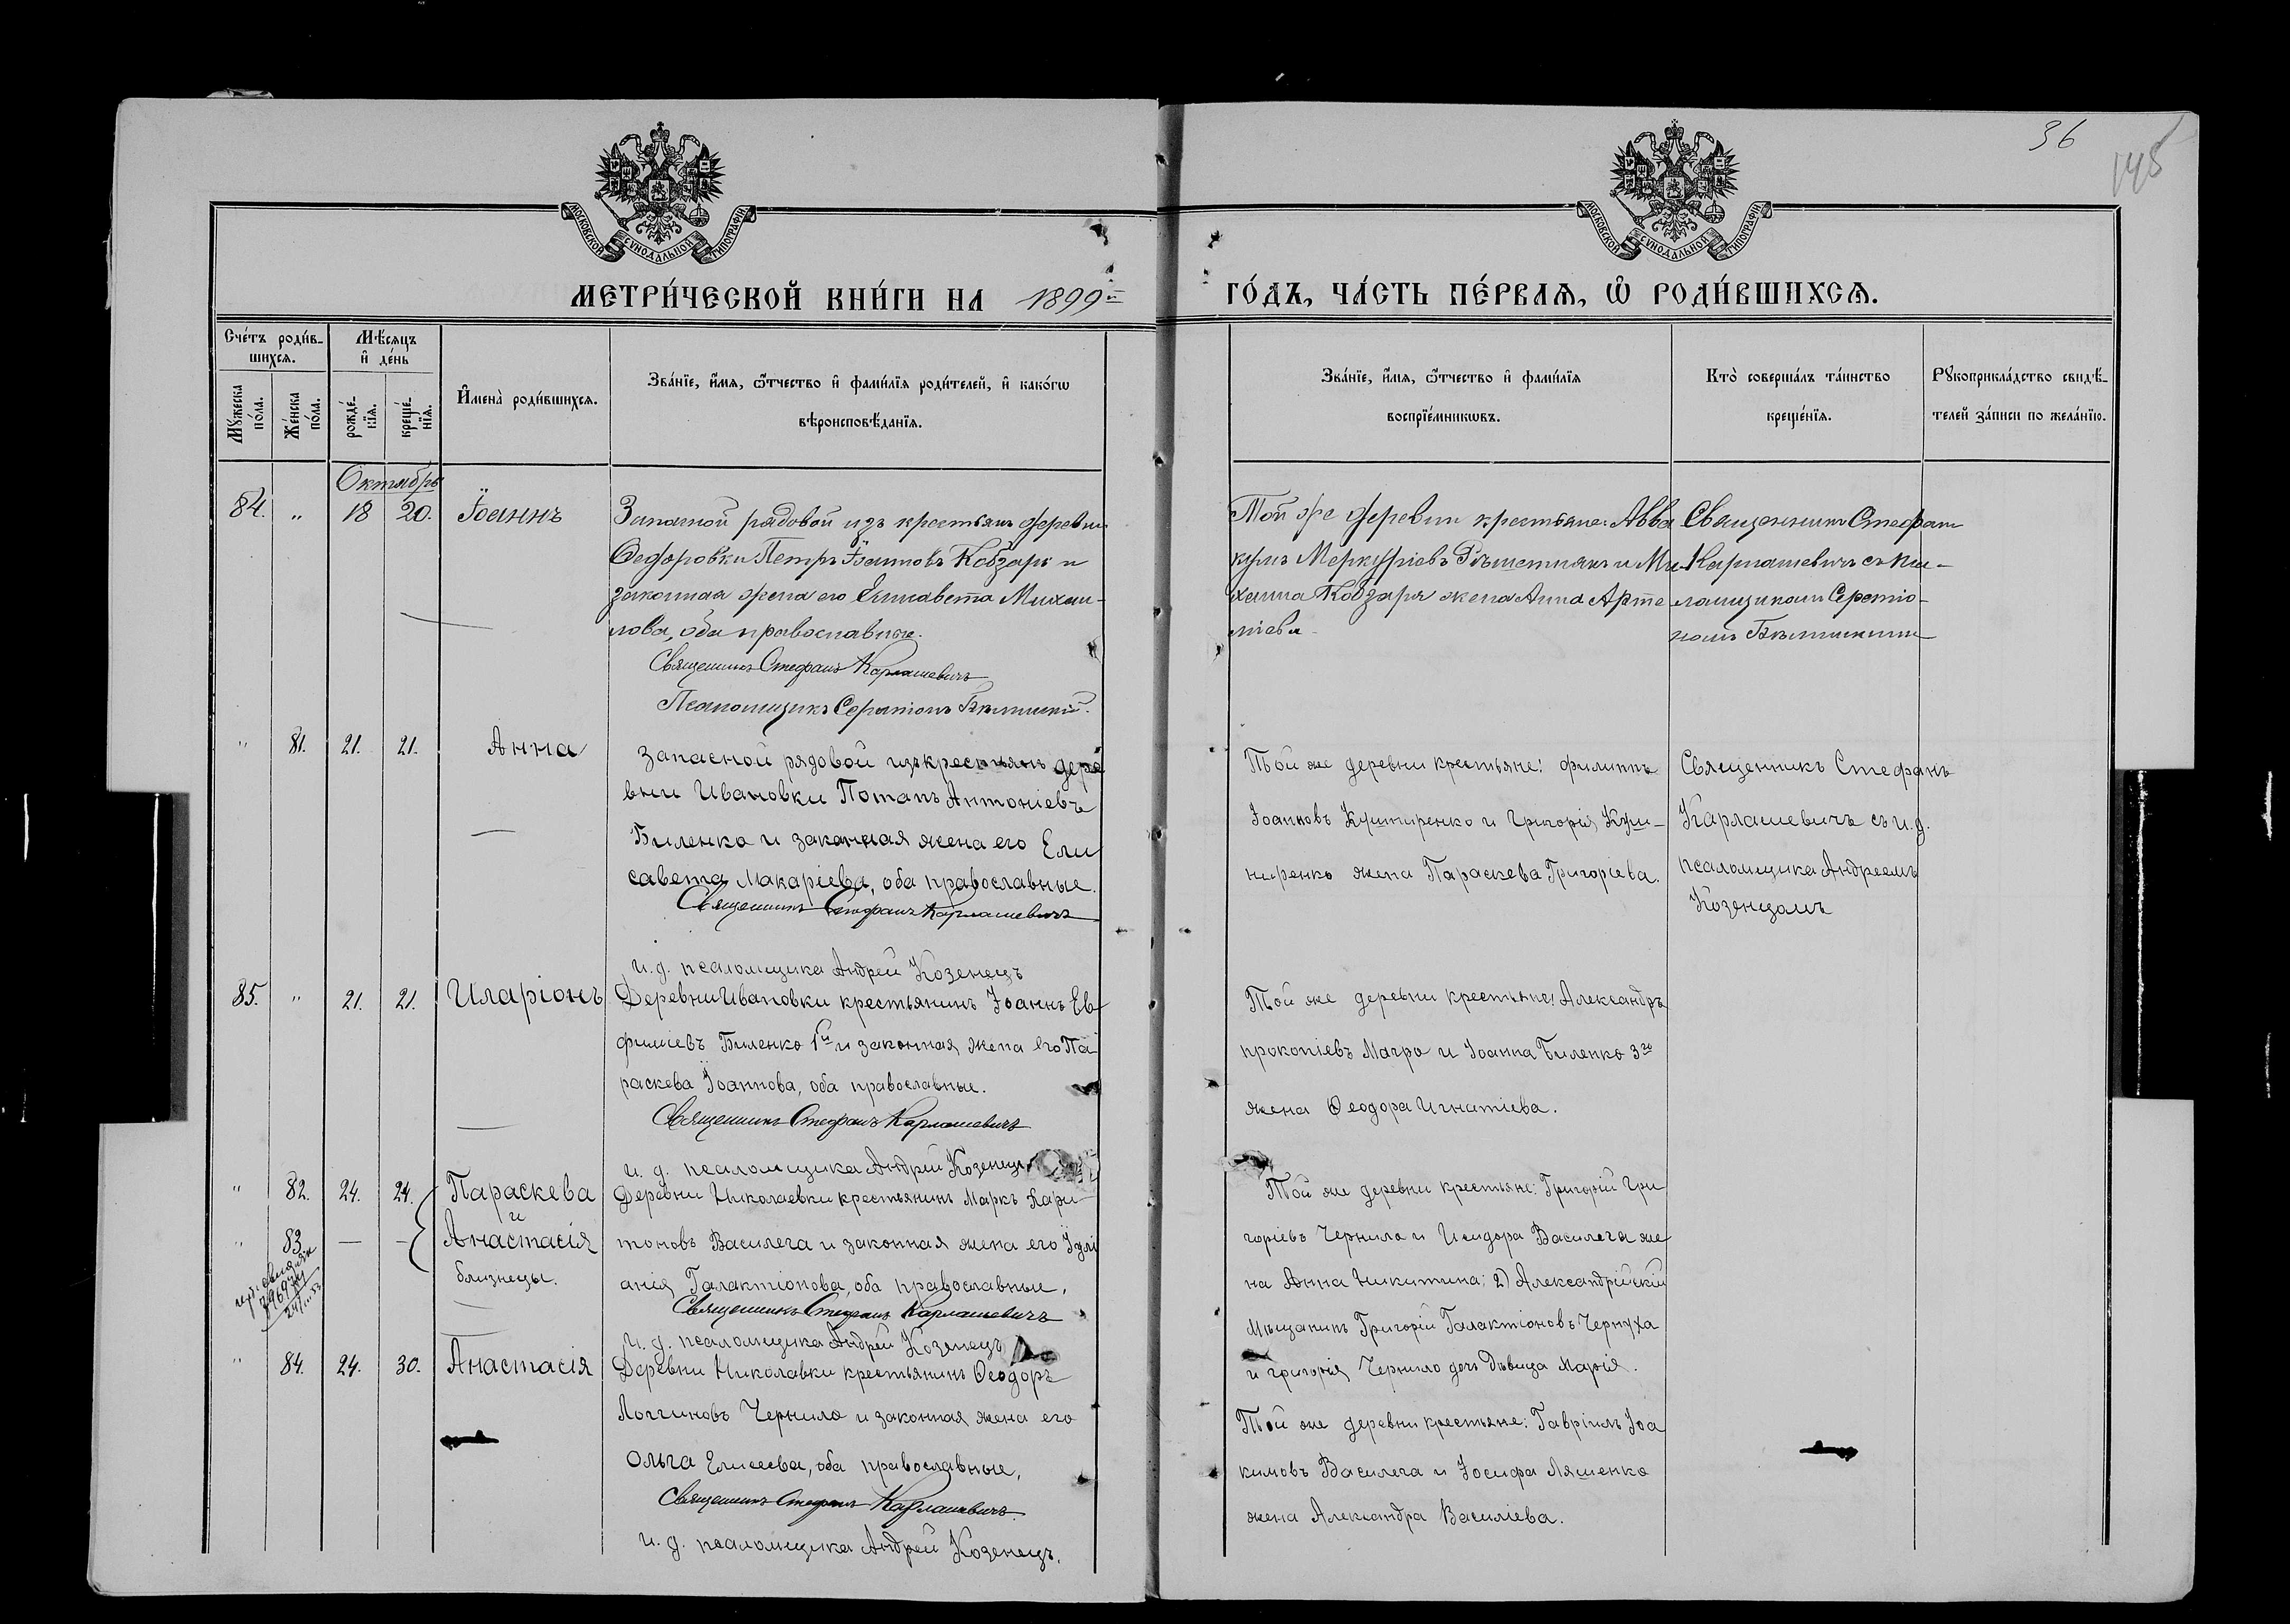 36
145
МОСКОВСКОЙ СѴНОДАЛЬНОЙ ТИПОГРАФІИ
МОСКОВСКОЙ СѴНОДАЛЬНОЙ ТИПОГРАФІИ
МЕТРИ́ЧЕСКОЙ КНИ́ГИ НА 1899й
ГО́ДЪ, ЧА́СТЬ ПЕ́РВАѦ, Ѽ РОДИ́ВШИХСѦ.
Сче́тъ роди́в-
шихсѧ.
Мѣ́сѧцъ
и҆ де́нь
Мꙋ́жеска по́ла.
Же́нска по́ла.
рожде́-
нїѧ.
креще́-
нїѧ.
И҆мена̀ роди́вшихсѧ.
Зва́нїе, и҆́мѧ, ѻ҆́тчество и҆ фами́лїѧ роди́телей, и҆ како́гѡ
вѣроисповѣ́данїѧ.
Зва́нїе, и҆́мѧ, ѻ҆́тчество и҆ фами́лїѧ
воспрїе́мникѡвъ.
Кто̀ соверша́лъ та́инство
креще́нїѧ.
Рꙋкоприкла́дство свидѣ́-
телей за́писи по жела́нїю.
Октябрь
84. " 18 20. Іоаннъ
Запасной рядовой изъ крестьянъ деревни
Ѳедоровки Петръ Іоанновъ Кобзарь и
законная жена его Елисавета Михаи-
лова, оба православные.
Священникъ Стефанъ Карлашевичъ
Псаломщикъ Серапіонъ
Той же деревни крестьяне: Авва
кумъ Меркуріевъ Рѣшетнякъ и Ми
хаила Кобзаря жена Анна Арте
міева
Священникъ Стефанъ
Карлашевичъ съ пса-
ломщикомъ Серапіо-
номъ
" 81. 21. 21. Анна
Запасной рядовой изъ крестьянъ дере
вни Ивановки Потапъ Антоніевъ
Биленко и законная жена его Ели
савета Макаріева, оба православные.
Священникъ Стефанъ Карлашевичъ
и. д. псаломщика Андрей Козенецъ
Той же деревни крестьяне: Филиппъ
Іоанновъ Кушниренко и Григорія Куш-
ниренко жена Параскева Григоріева.
Священникъ Стефанъ
Карлашевичъ съ и. д.
псаломщика Андреемъ
Козенцомъ
85. " 21. 21. Иларіонъ
Деревни Ивановки крестьянинъ Іоаннъ Ев
фиміевъ Биленко 1й и законная жена его Па
раскева Іоаннова, оба православные.
Священникъ Стефанъ Карлашевичъ
и. д. псаломщика Андрей Козенецъ
Той же деревни крестьяне: Александръ
Прокопіевъ Магро и Іоанна Биленко 3го
жена Ѳеодора Игнатіева.
" 82. 24. 24. Параскева
и
" 83. — — Анастасія
близнецы.
Деревни Николаевки крестьянинъ Маркъ Хари
тоновъ Василега и законная жена его Іулі
анія Галактіонова, оба православные.
Священникъ Стефанъ Карлашевичъ
и. д. псаломщика Андрей Козенецъ
Той же деревни крестьяне: Григорій Гри
горіевъ Чернило и Исидора Василега же
на Анна Никитина; 2) Александрійскій
Мѣщанинъ Григорій Галактіоновъ Чернуха
и Григорія Чернило дочь дѣвица Марія.
" 84. 24. 30. Анастасія
Деревни Николавки крестьянинъ Ѳеодоръ
Логгиновъ Чернило и законная жена его
Ольга Елисеева, оба православные.
Священникъ Стефанъ Карлашевичъ
и. д. псаломщика Андрей Козенецъ.
Той же деревни крестьяне: Гавріилъ Іоа
кимовъ Василега и Іосифа Ляшенко
жена Александра Василіева.